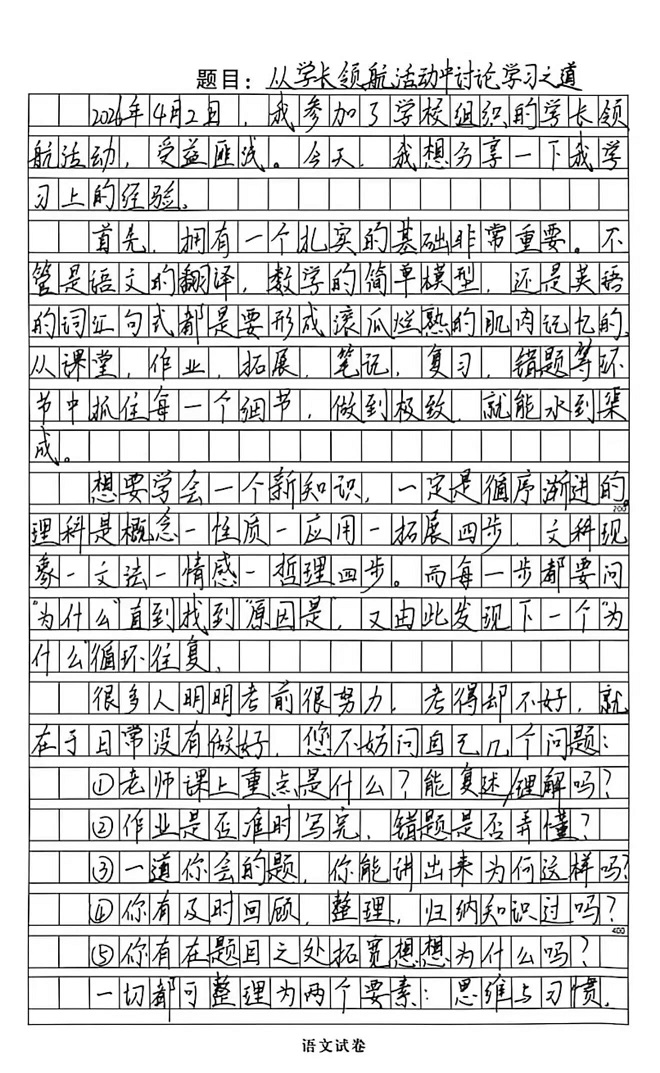 题目：从学长领航活动中讨论学习之道
2026年4月2日，我参加了学校组织的学长领
航活动，受益匪浅。今天，我想分享一下我学
习上的经验。
首先，拥有一个扎实的基础非常重要。不
管是语文的翻译，数学的简单模型，还是英语
的词汇句式都是要形成滚瓜烂熟的肌肉记忆的，
从课堂，作业，拓展，笔记，复习，错题等环
节中抓住每一个细节，做到极致，就能水到渠
成。
想要学会一个新知识，一定是循序渐进的。
200
理科是概念－性质－应用－拓展四步，文科现
象－文法－情感－哲理四步。而每一步都要问
“为什么”直到找到“原因是”，又由此发现下一个“为
什么”循环往复，
很多人明明考前很努力，考得却不好，就
在于日常没有做好，您不妨问自己几个问题：
①老师课上重点是什么？能复述/理解吗？
②作业是否准时写完，错题是否弄懂？
③一道你会的题，你能讲出来为何这样吗？
④你有及时回顾，整理，归纳知识过吗？
400
⑤你有在题目之处拓宽想想为什么吗？
一切都可整理为两个要素：思维与习惯，
语文试卷